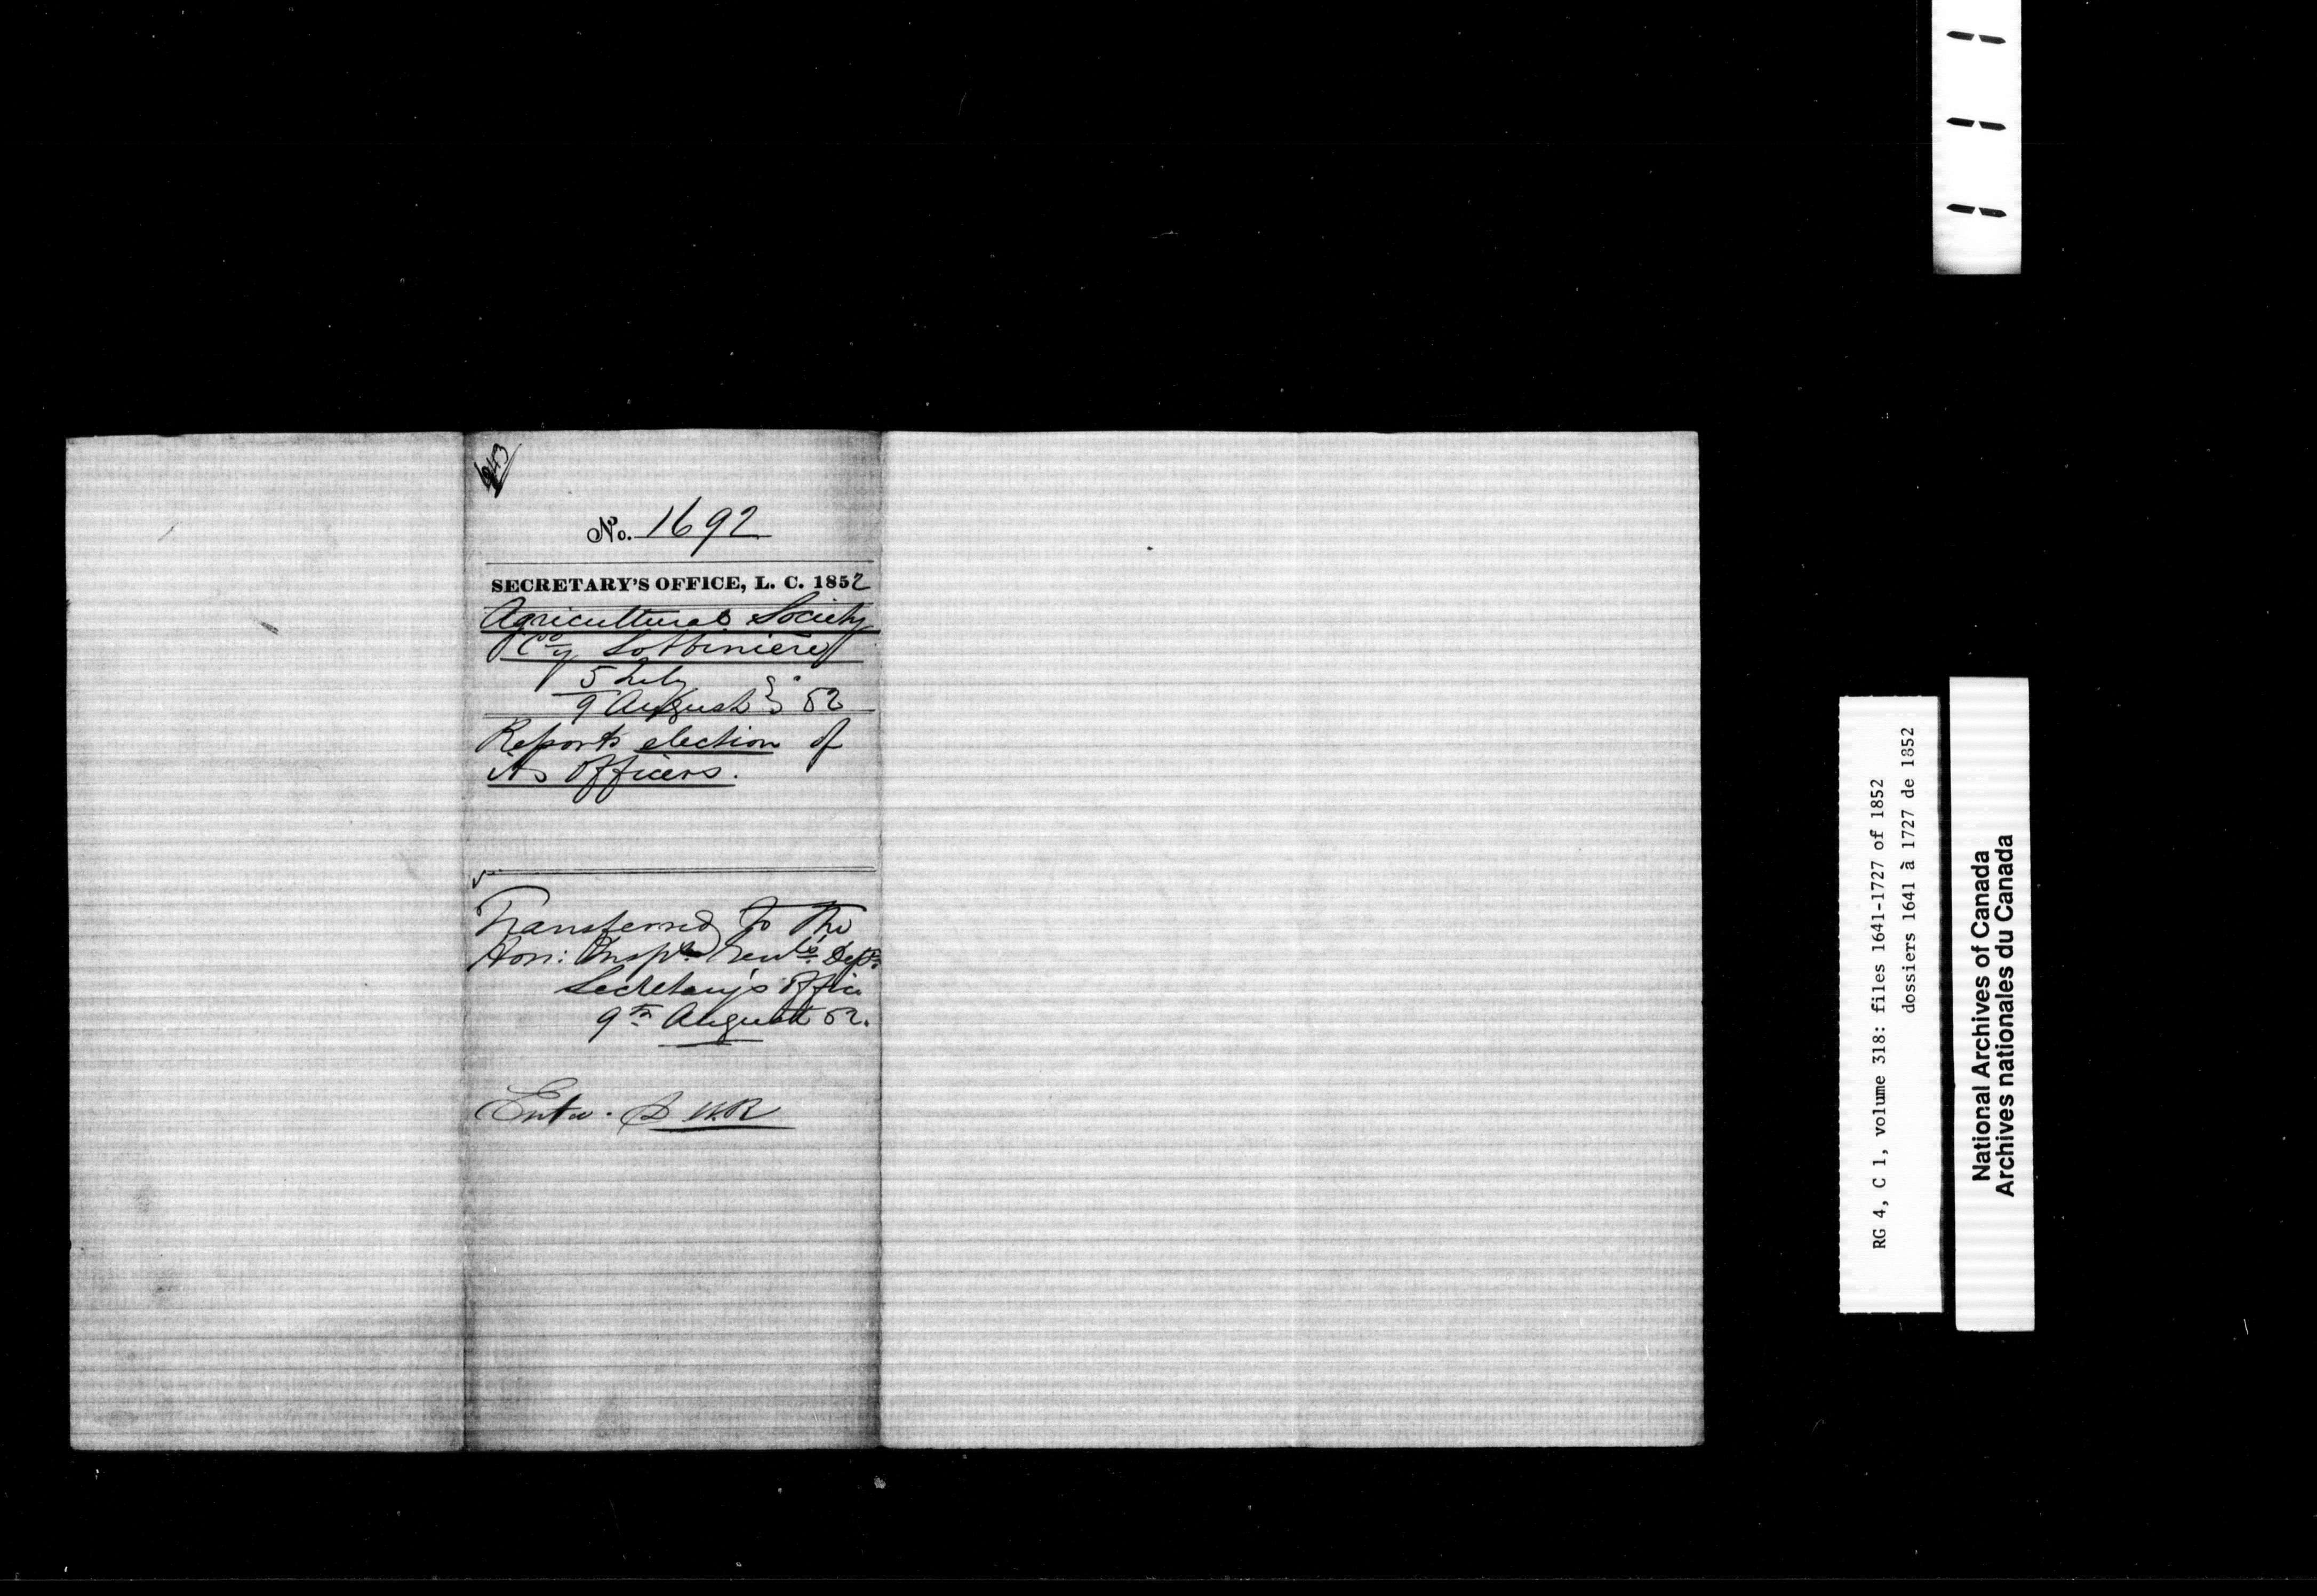 No. 1692
SECRETARY'S OFFICE, L. C. 1852
Agricultural Society
Co of Lotbinière
5 July
9 August } 52
Reports election of
its officers.
Transferred to the
Hon: Insp. Genl's Dept.
Secretary's Office
9th August 52.
Entd.
RG 4, C 1, volume 318: files 1641-1727 of 1852
dossiers 1641 à 1727 de 1852
National Archives of Canada
Archives nationales du Canada